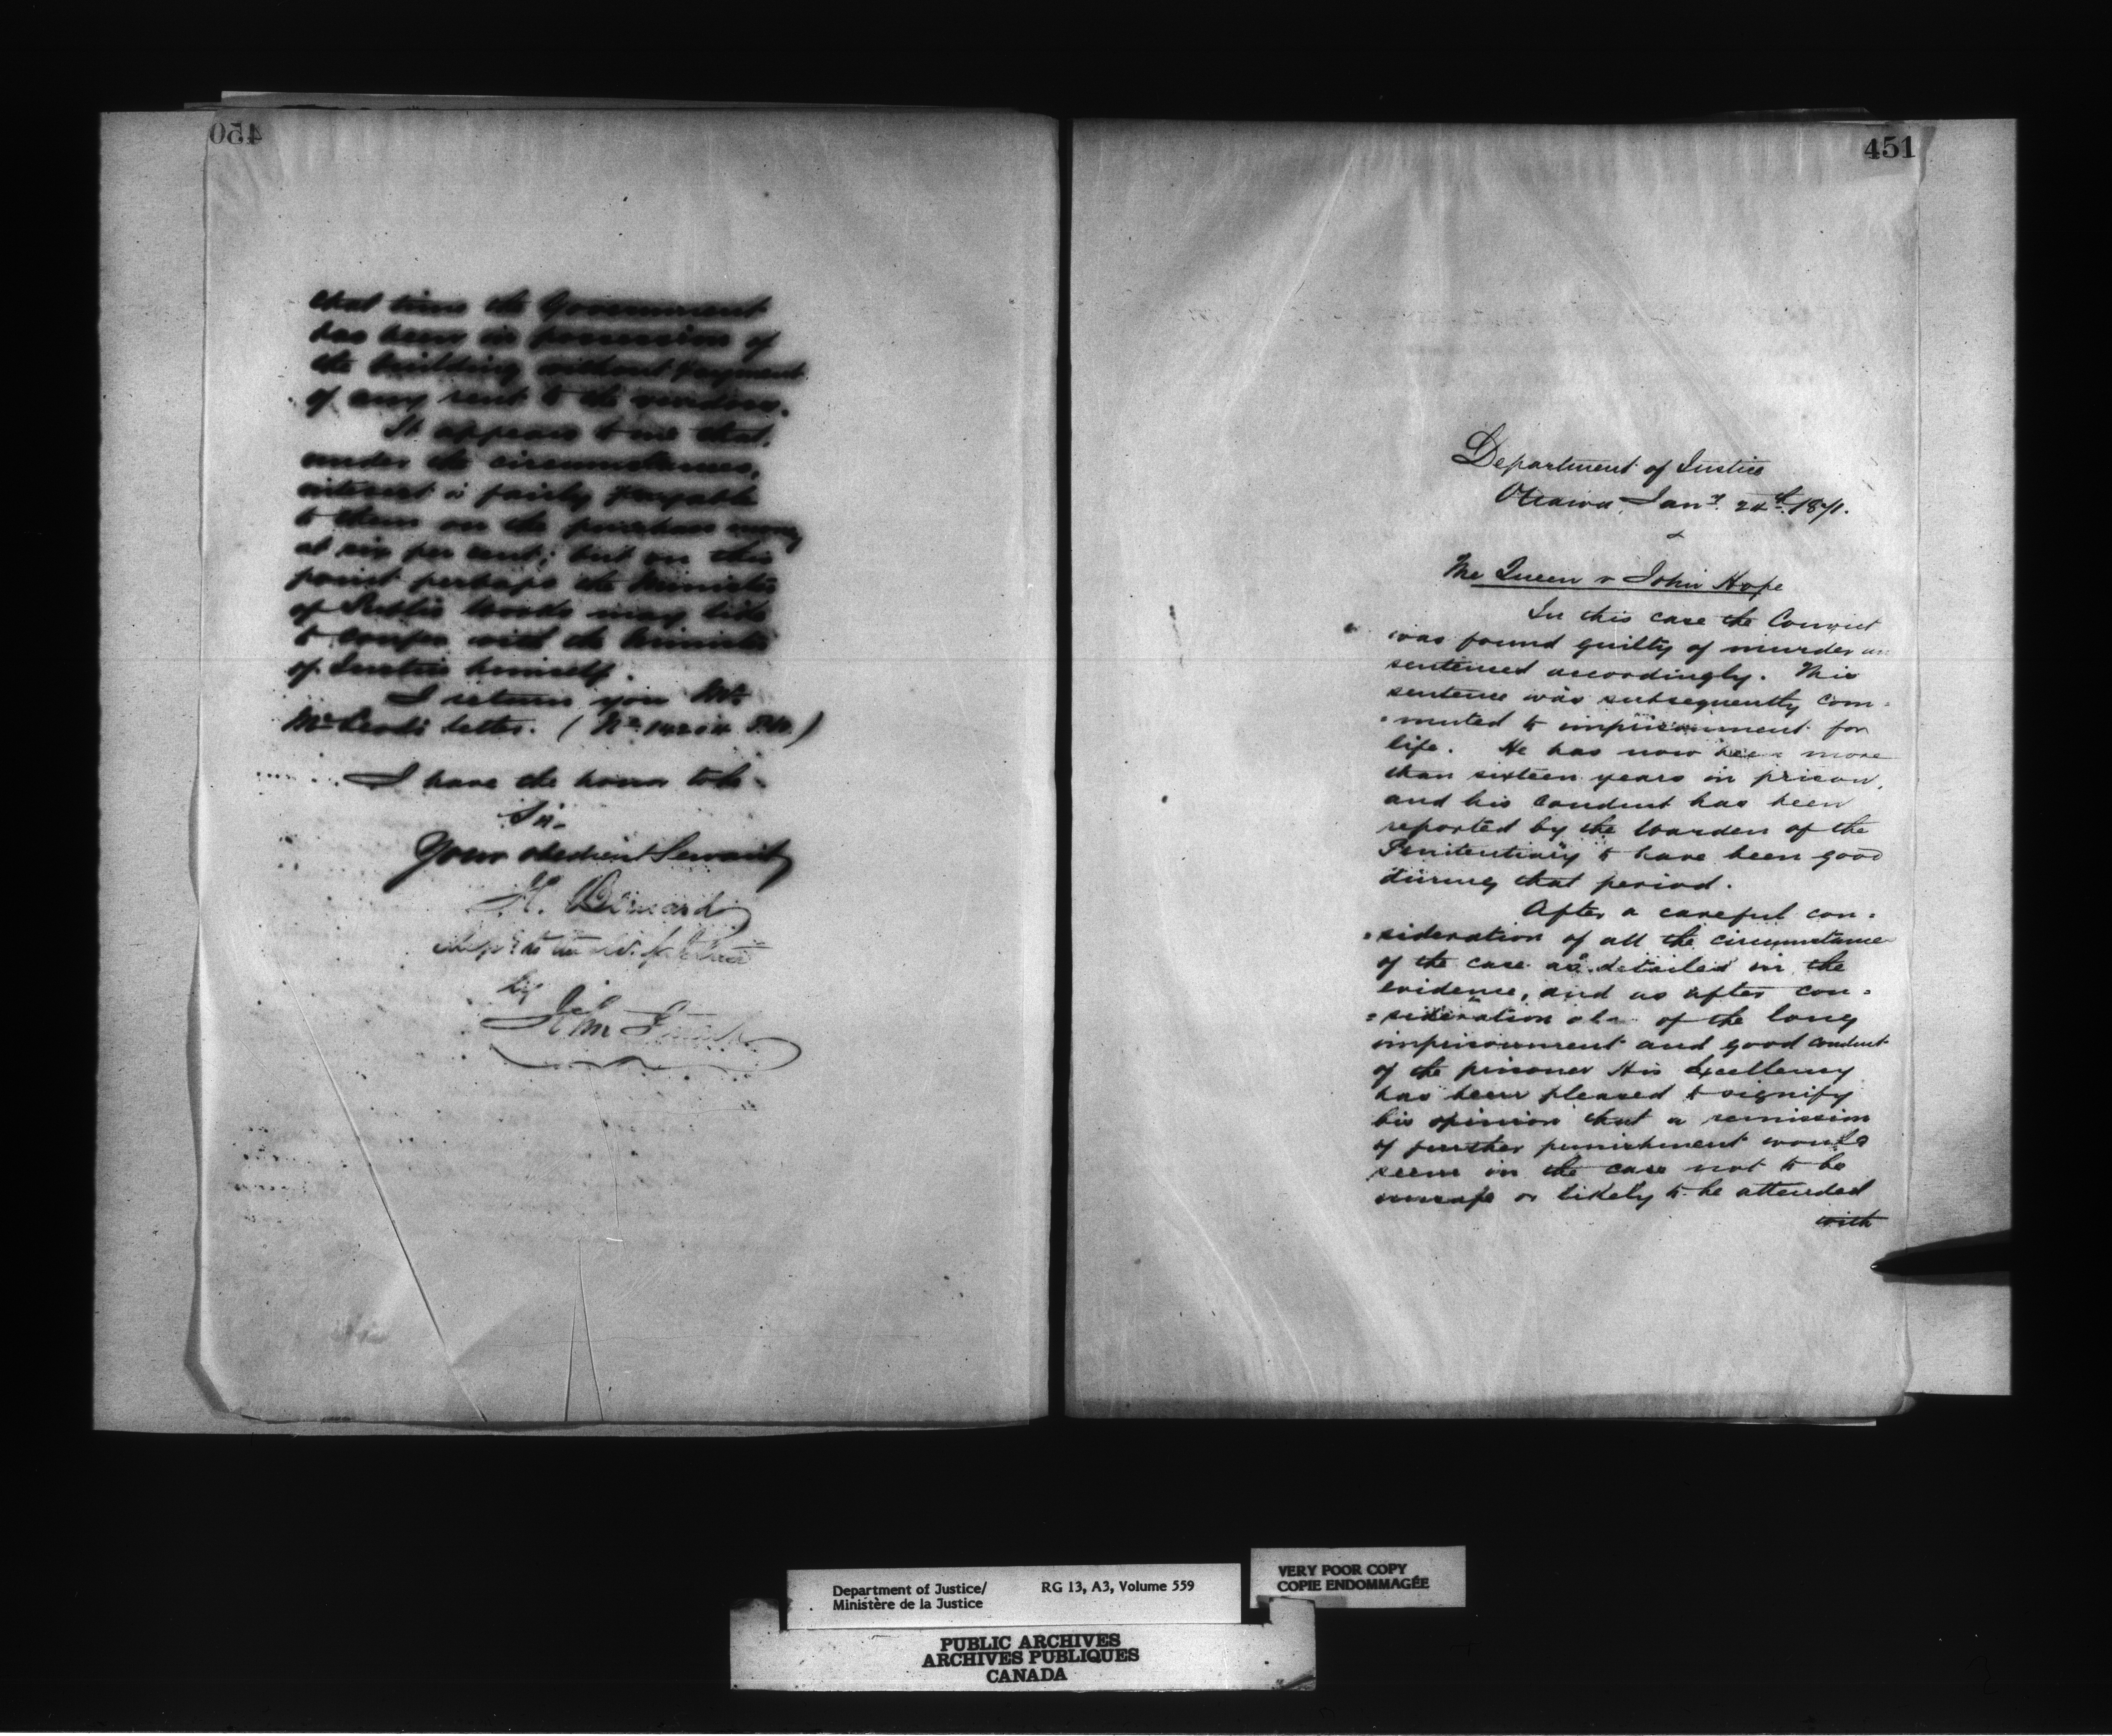 450
that time the Government
has been in possession of
the building without payment
of any rent to the vendors.
It appears to me that,
under the circumstances,
interest is fairly payable
to them on the purchase money
at six per cent; but on this
point perhaps the Minister
of Public Works may like
to confer with the Minister
of Justice himself.
I return you Mr
McLeod's letter. (No. 14204 P.W.)
I have the honor to be
Sir
Your obedient Servant
H. Bernard
by
451
Department of Justice
Ottawa, Jany. 24th. 1871.
The Queen v John Hope
In this case the Convict
was found guilty of murder an
sentenced accordingly. This
sentence was subsequently com=
=muted to imprisonment for
life. He has now been more
than sixteen years in prison,
and his conduct has been
reported by the Warden of the
Penitentiary to have been good
during that period.
After a careful con=
=sideration of all the circumstances
of the case as detailed in the
evidence, and as after con=
=sideration also of the long
imprisonment and good conduct
of the prisoner His Excellency
has been pleased to signify
his opinion that a remission
of further punishment would
seem in the case not to be
unsafe or likely to be attended
with
Department of Justice/ RG 13, A3, Volume 559
Ministère de la Justice
VERY POOR COPY
COPIE ENDOMMAGÉE
PUBLIC ARCHIVES
ARCHIVES PUBLIQUES
CANADA